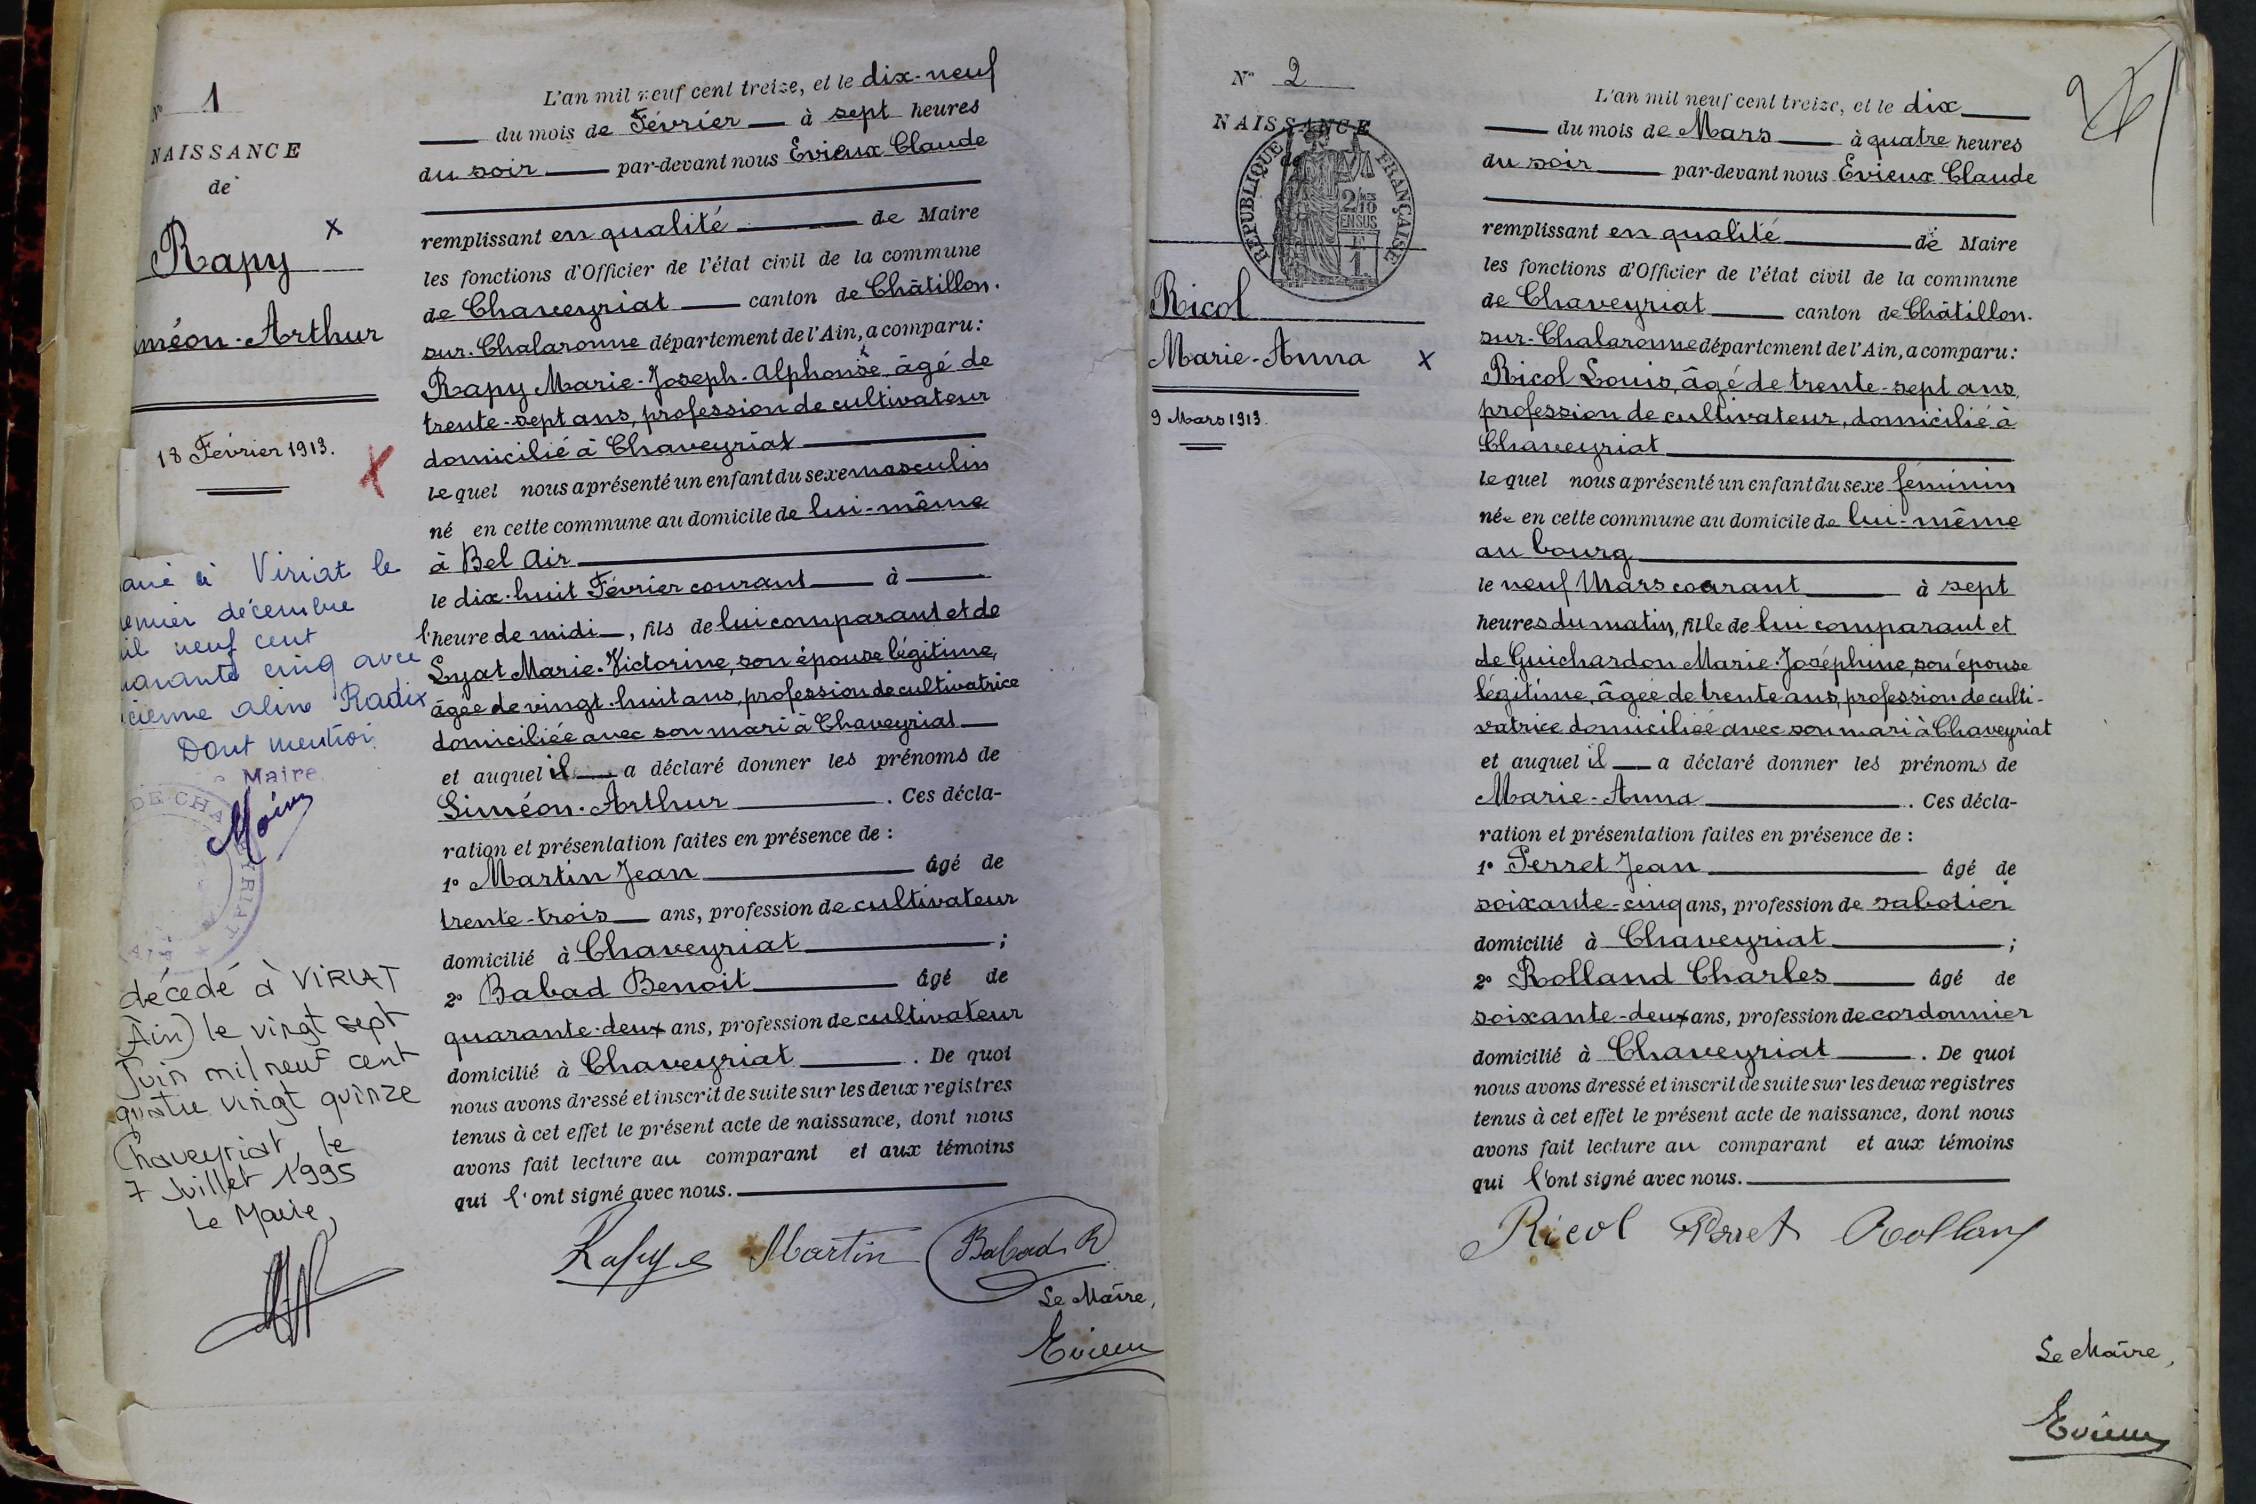 N° 1
NAISSANCE
de
Rapy x
iméon-Arthur
18 Février 1913.
X
arié à Viriat le
emier décembre
il neuf cent
uarante cinq avec
cienne Aline Radix
Dont mention
Maire
DE CHA
EYRIAT
décédé à VIRIAT
Ain) le vingt sept
Juin mil neuf cent
quatre vingt quinze
Chaveyriat, le
7 Juillet 1995
Le Maire,
L'an mil neuf cent treize, et le dix-neuf
du mois de Février à sept heures
du soir par-devant nous Evieux Claude
remplissant en qualité de Maire
les fonctions d'Officier de l'état civil de la commune
de Chaveyriat canton de Châtillon-
sur-Chalaronne département de l'Ain, a comparu:
Rapy Marie-Joseph-Alphonse, âgé de
trente-sept ans, profession de cultivateur
domicilié à Chaveyriat
lequel nous a présenté un enfant du sexe masculin
né en cette commune au domicile de lui-même
à Bel Air
le dix-huit Février courant à
l'heure de midi, fils de lui comparant et de
Lyat Marie-Victorine, son épouse légitime,
âgée de vingt-huit ans, profession de cultivatrice
domiciliée avec son mari à Chaveyriat
et auquel il a déclaré donner les prénoms de
Siméon-Arthur . Ces décla-
ration et présentation faites en présence de :
1° Martin Jean âgé de
trente-trois ans, profession de cultivateur
domicilié à Chaveyriat ;
2° Babad Benoit âgé de
quarante-deux ans, profession de cultivateur
domicilié à Chaveyriat . De quoi
nous avons dressé et inscrit de suite sur les deux registres
tenus à cet effet le présent acte de naissance, dont nous
avons fait lecture au comparant et aux témoins
qui l'ont signé avec nous.
Rapy Martin Babad B
Le Maire,
Evieux
N° 2
NAISSANCE
de
REPUBLIQUE FRANÇAISE
2/10
EN SUS
F
1
Ricol
Marie-Anna x
9 Mars 1913.
L'an mil neuf cent treize, et le dix
du mois de Mars à quatre heures
du soir par-devant nous Evieux Claude
remplissant en qualité de Maire
les fonctions d'Officier de l'état civil de la commune
de Chaveyriat canton de Châtillon-
sur-Chalaronne département de l'Ain, a comparu:
Ricol Louis, âgé de trente-sept ans,
profession de cultivateur, domicilié à
Chaveyriat
lequel nous a présenté un enfant du sexe féminin
née en cette commune au domicile de lui-même
au bourg
le neuf Mars courant à sept
heures du matin, fille de lui comparant et
de Guichardon Marie-Joséphine, son épouse
légitime, âgée de trente ans, profession de culti-
vatrice domiciliée avec son mari à Chaveyriat
et auquel il a déclaré donner les prénoms de
Marie-Anna . Ces décla-
ration et présentation faites en présence de :
1° Perret Jean âgé de
soixante-cinq ans, profession de sabotier
domicilié à Chaveyriat ;
2° Rolland Charles âgé de
soixante-deux ans, profession de cordonnier
domicilié à Chaveyriat . De quoi
nous avons dressé et inscrit de suite sur les deux registres
tenus à cet effet le présent acte de naissance, dont nous
avons fait lecture au comparant et aux témoins
qui l'ont signé avec nous.
Ricol Perret Rolland
Le Maire,
Evieux